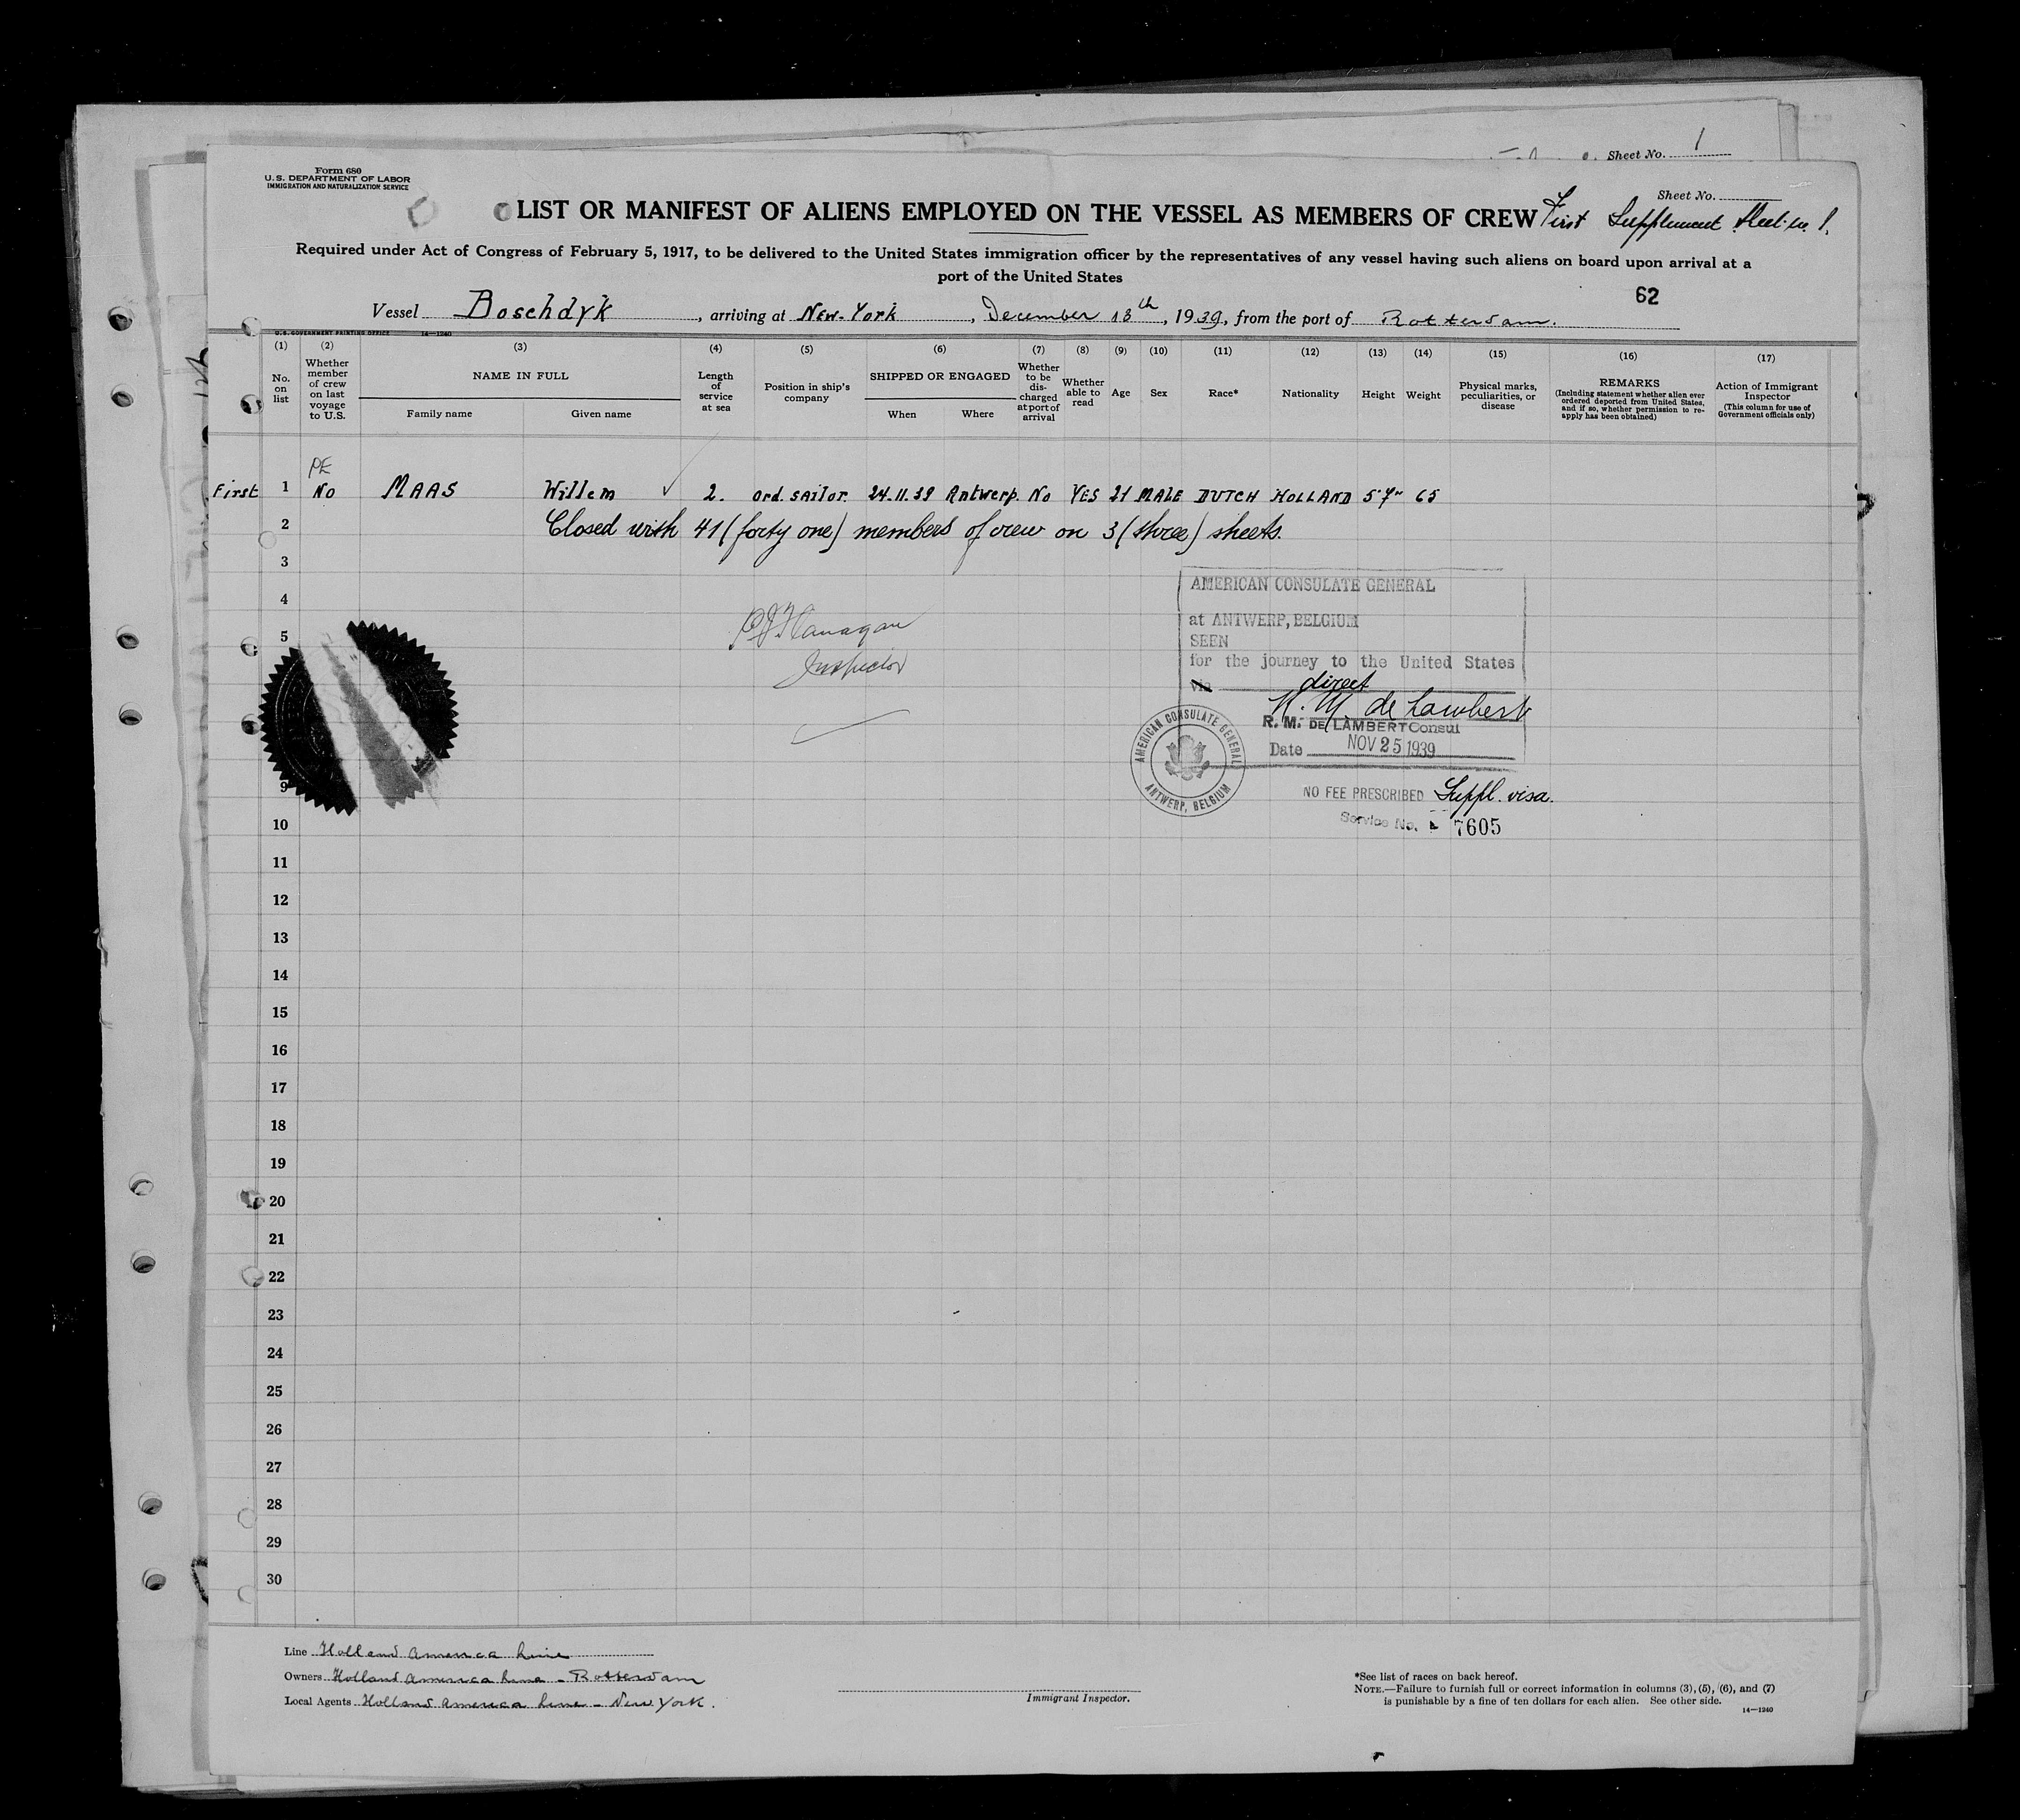 Sheet No. 1
Form 680
U. S. DEPARTMENT OF LABOR
IMMIGRATION AND NATURALIZATION SERVICE
Sheet No.
LIST OR MANIFEST OF ALIENS EMPLOYED ON THE VESSEL AS MEMBERS OF CREW First Supplement Sheet no 1.
Required under Act of Congress of February 5, 1917, to be delivered to the United States immigration officer by the representatives of any vessel having such aliens on board upon arrival at a
port of the United States
62
Vessel Boschdyk, arriving at New-York, December 18th, 1939, from the port of Rotterdam.
U. S. GOVERNMENT PRINTING OFFICE 14—1240
(1) (2) (3) (4) (5) (6) (7) (8) (9) (10) (11) (12) (13) (14) (15) (16) (17)
No. on list
Whether member of crew on last voyage to U.S.
NAME IN FULL
Family name Given name
Length of service at sea
Position in ship's company
SHIPPED OR ENGAGED
When Where
Whether to be discharged at port of arrival
Whether able to read
Age
Sex
Race*
Nationality
Height
Weight
Physical marks, peculiarities, or disease
REMARKS
(Including statement whether alien ever ordered deported from United States, and if so, whether permission to re-apply has been obtained)
Action of Immigrant Inspector
(This column for use of Government officials only)
PE
First 1 No MAAS Willem 2. ord. sailor. 24.11.39 Antwerp. No YES 21 MALE DUTCH HOLLAND 5'7" 65
2 Closed with 41 (forty one) members of crew on 3 (three) sheets.
3
4
5
9
10
11
12
13
14
15
16
17
18
19
20
21
22
23
24
25
26
27
28
29
30
P J Flanagan
Inspector
AMERICAN CONSULATE GENERAL
at ANTWERP, BELGIUM
SEEN
for the journey to the United States
via direct
R. M. de Lambert
R. M. DE LAMBERT Consul
Date NOV 25 1939
AMERICAN CONSULATE GENERAL
ANTWERP, BELGIUM
NO FEE PRESCRIBED Suppl. visa.
Service No. 7605
Line Holland America Line
Owners Holland America Line - Rotterdam
Local Agents Holland America Line - New York.
Immigrant Inspector.
*See list of races on back hereof.
NOTE.—Failure to furnish full or correct information in columns (3), (5), (6), and (7)
is punishable by a fine of ten dollars for each alien. See other side.
14—1240